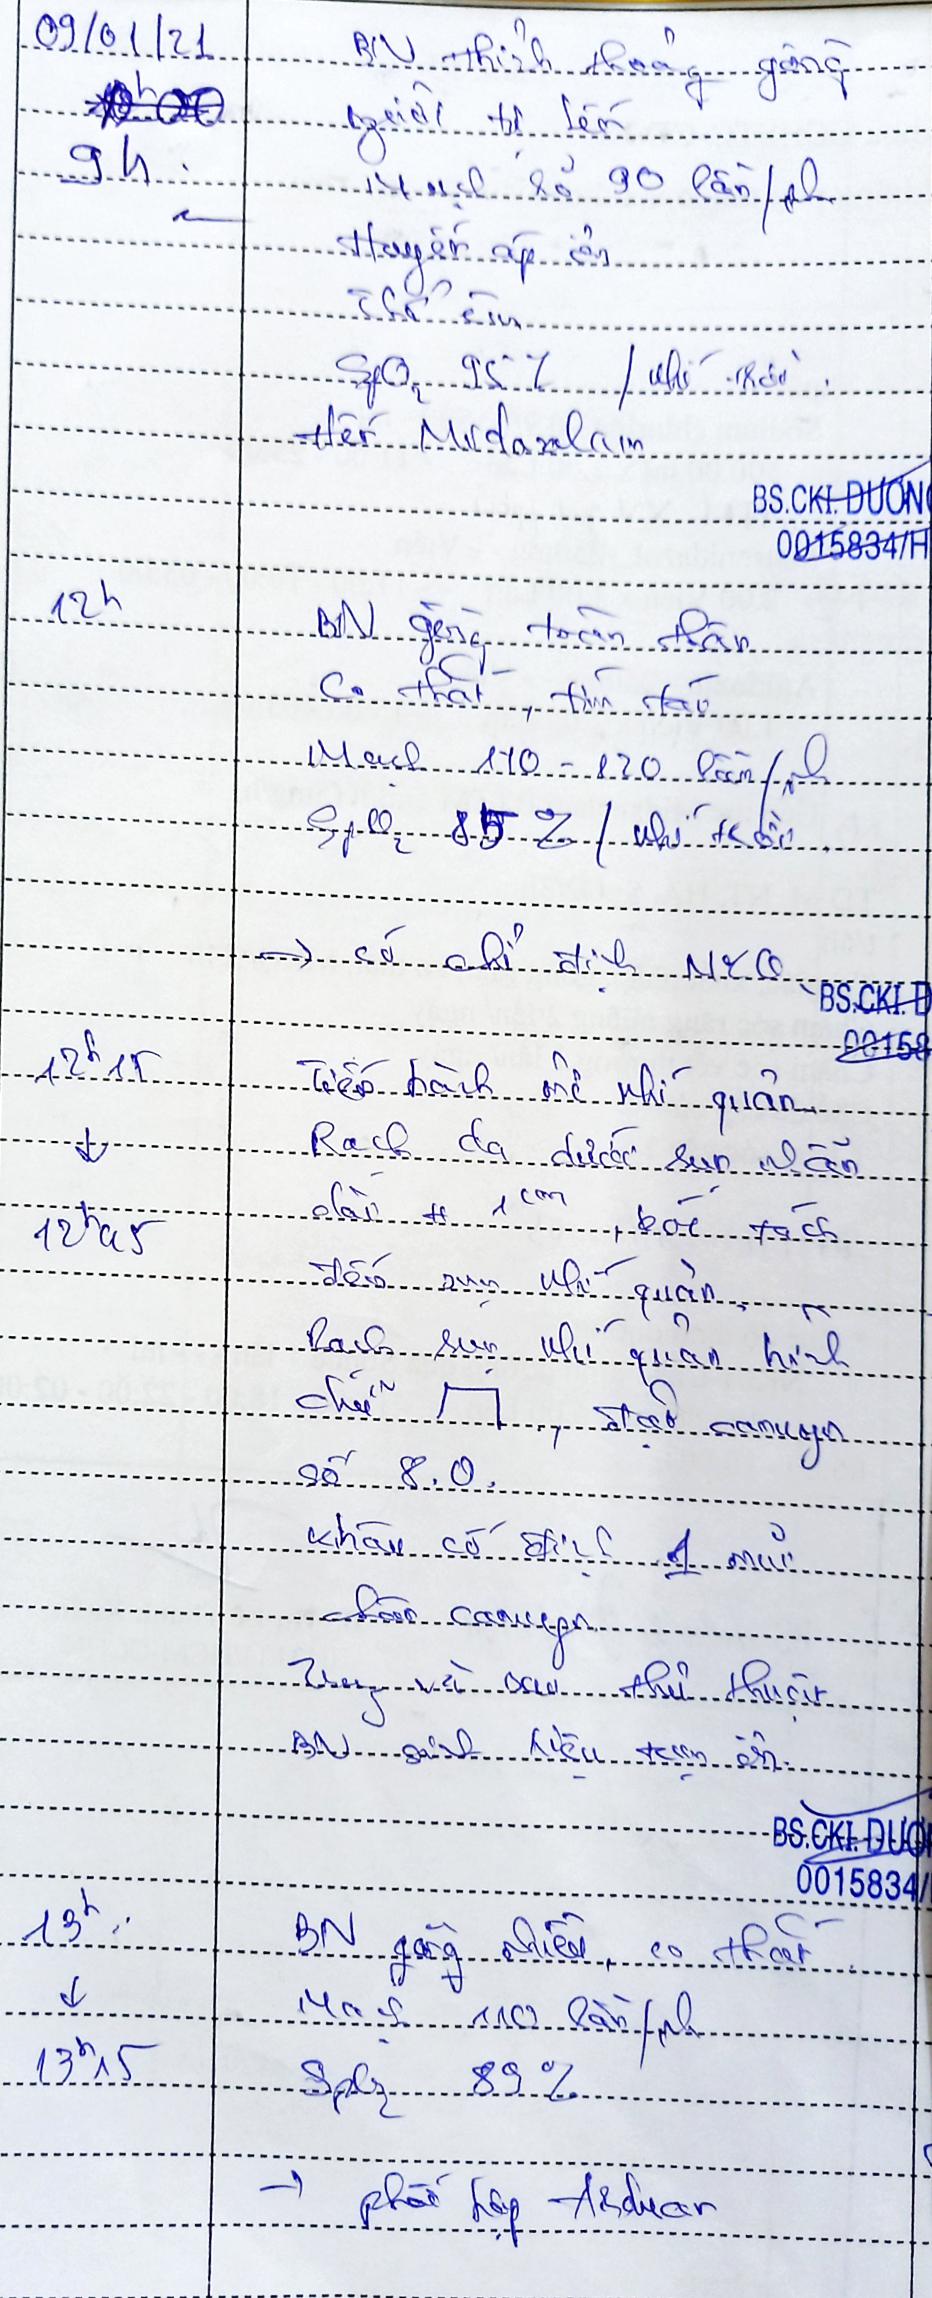 09/01/21 BN thỉnh thoảng gồng
người từ lên
9h. Mạch số 90 lần/ph
Huyết áp ổn
Thở êm
SpO2 95% / khí trời.
Hết Midazolam
BS.CKI.DUONG
0015834/H
12h BN gồng toàn thân
Co thắt, tím tái
Mạch 110 - 120 lần/ph
SpO2 85% / khí trời.
→ có chỉ định MKQ
BS.CKI.D
00158
12h15 Tiến hành mở khí quản.
↓ Rạch da dưới sụn nhẫn
dài # 1cm, bóc tách
12h45
đến sụn khí quản.
Rạch sụn khí quản hình
chữ ⊓, đặt canuyn
số 8.0.
Khâu cố định 1 mũi
chân canuyn
Trong và sau thủ thuật
BN sinh hiệu tạm ổn.
BS.CKI.DUO
0015834/
13h: BN gồng nhiều, co thắt.
↓ Mạch 110 lần/ph
13h15 SpO2 89%
→ phối hợp Arduan